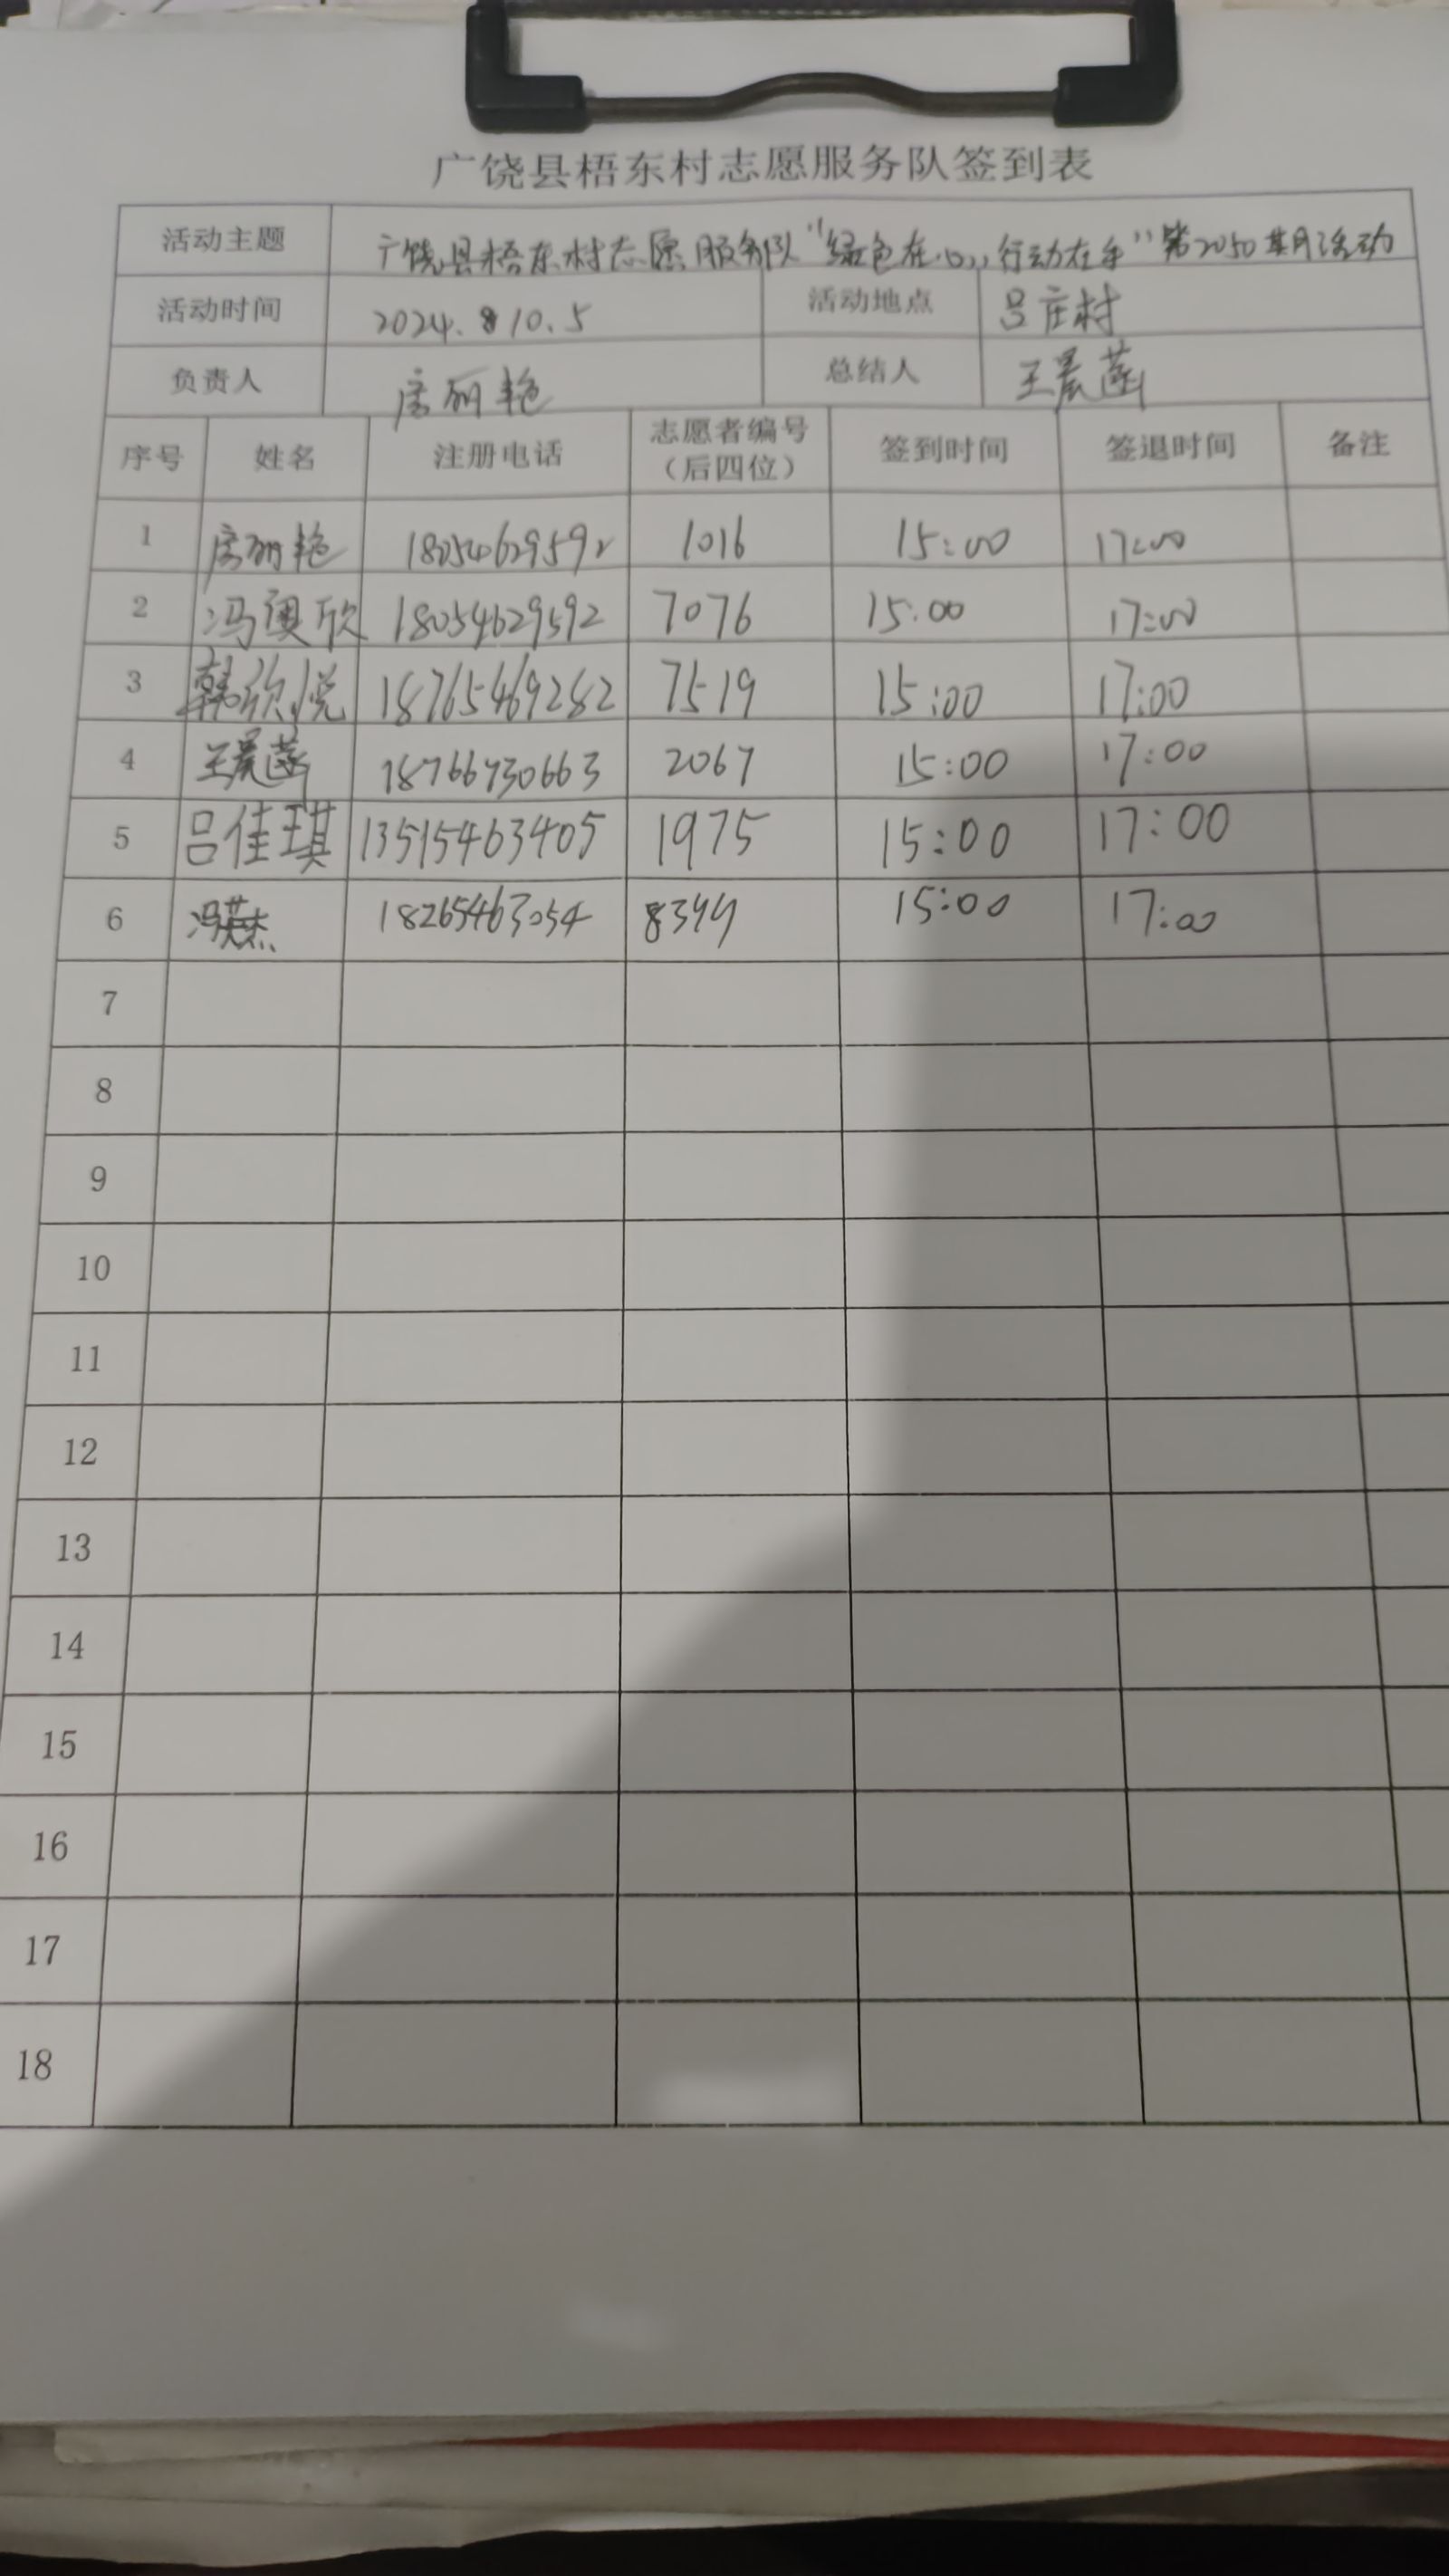 广饶县梧东村志愿服务队签到表
活动主题 广饶县梧东村志愿服务队"绿色在心,行动在手"第2050期活动
活动时间 2024.10.5 活动地点 吕庄村
负责人 房丽艳 总结人 王晨菡
序号 姓名 注册电话 志愿者编号（后四位） 签到时间 签退时间 备注
1 房丽艳 18054629592 1016 15:00 17:00
2 冯奥欣 18054629592 7076 15:00 17:00
3 韩欣悦 18765469282 7519 15:00 17:00
4 王晨菡 18766730663 2067 15:00 17:00
5 吕佳琪 13515463405 1975 15:00 17:00
6 冯英杰 18265463054 15:00 17:00
7
8
9
10
11
12
13
14
15
16
17
18